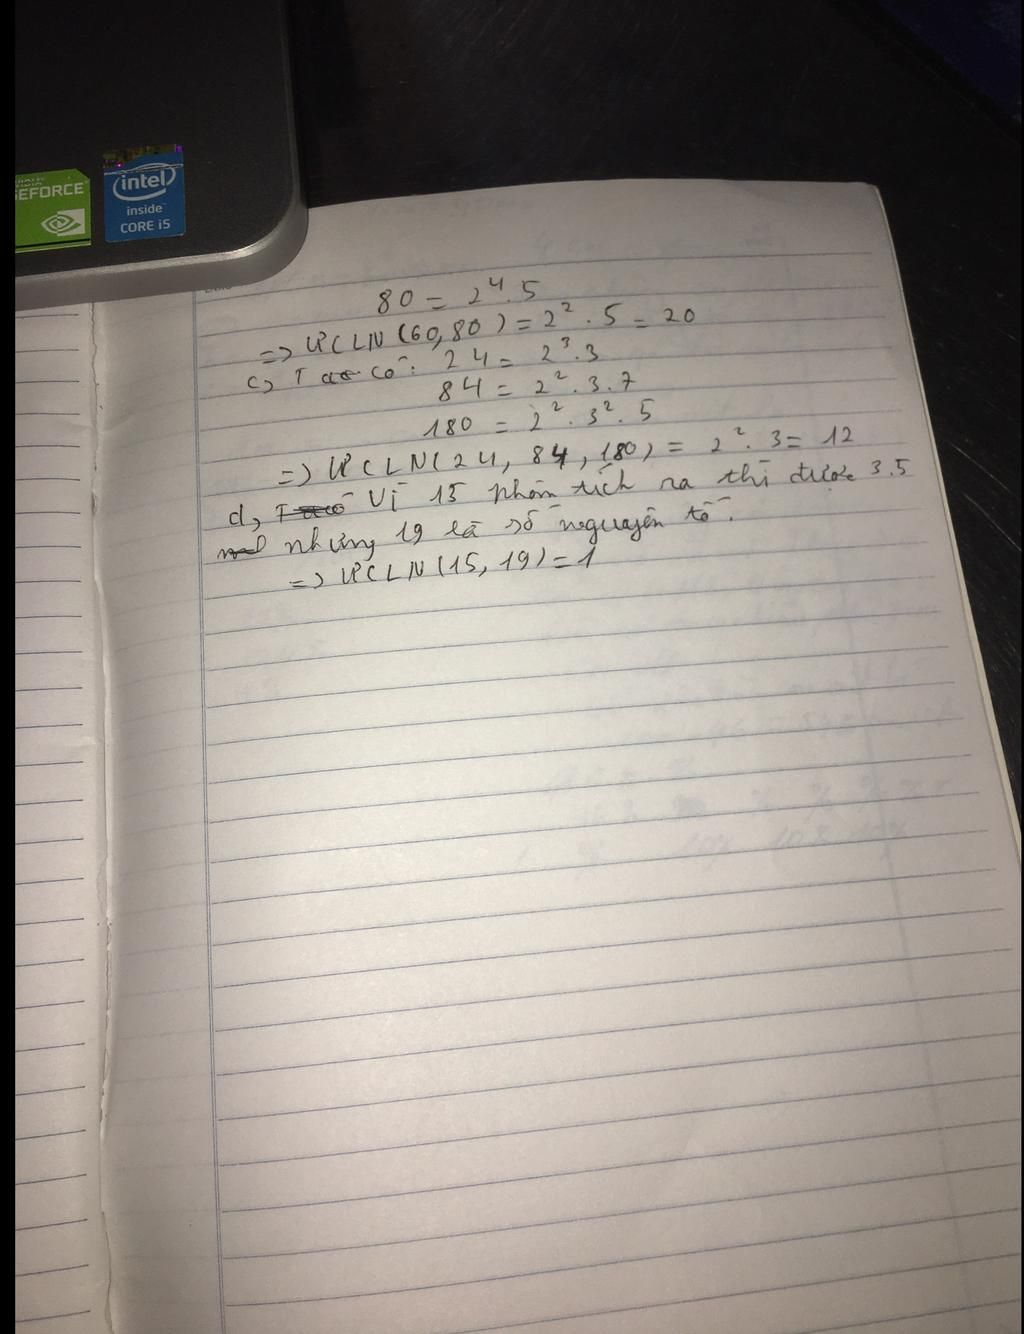 GEFORCE
intel
inside™
CORE i5
80 = 2⁴.5
=> ƯCLN(60,80) = 2² . 5 = 20
c, Ta có: 24 = 2³.3
84 = 2².3.7
180 = 2².3².5
=> ƯCLN(24, 84, 180) = 2².3 = 12
d, Ta có Vì 15 phân tích ra thì được 3.5
nhưng 19 là số nguyên tố.
=> ƯCLN(15, 19) = 1